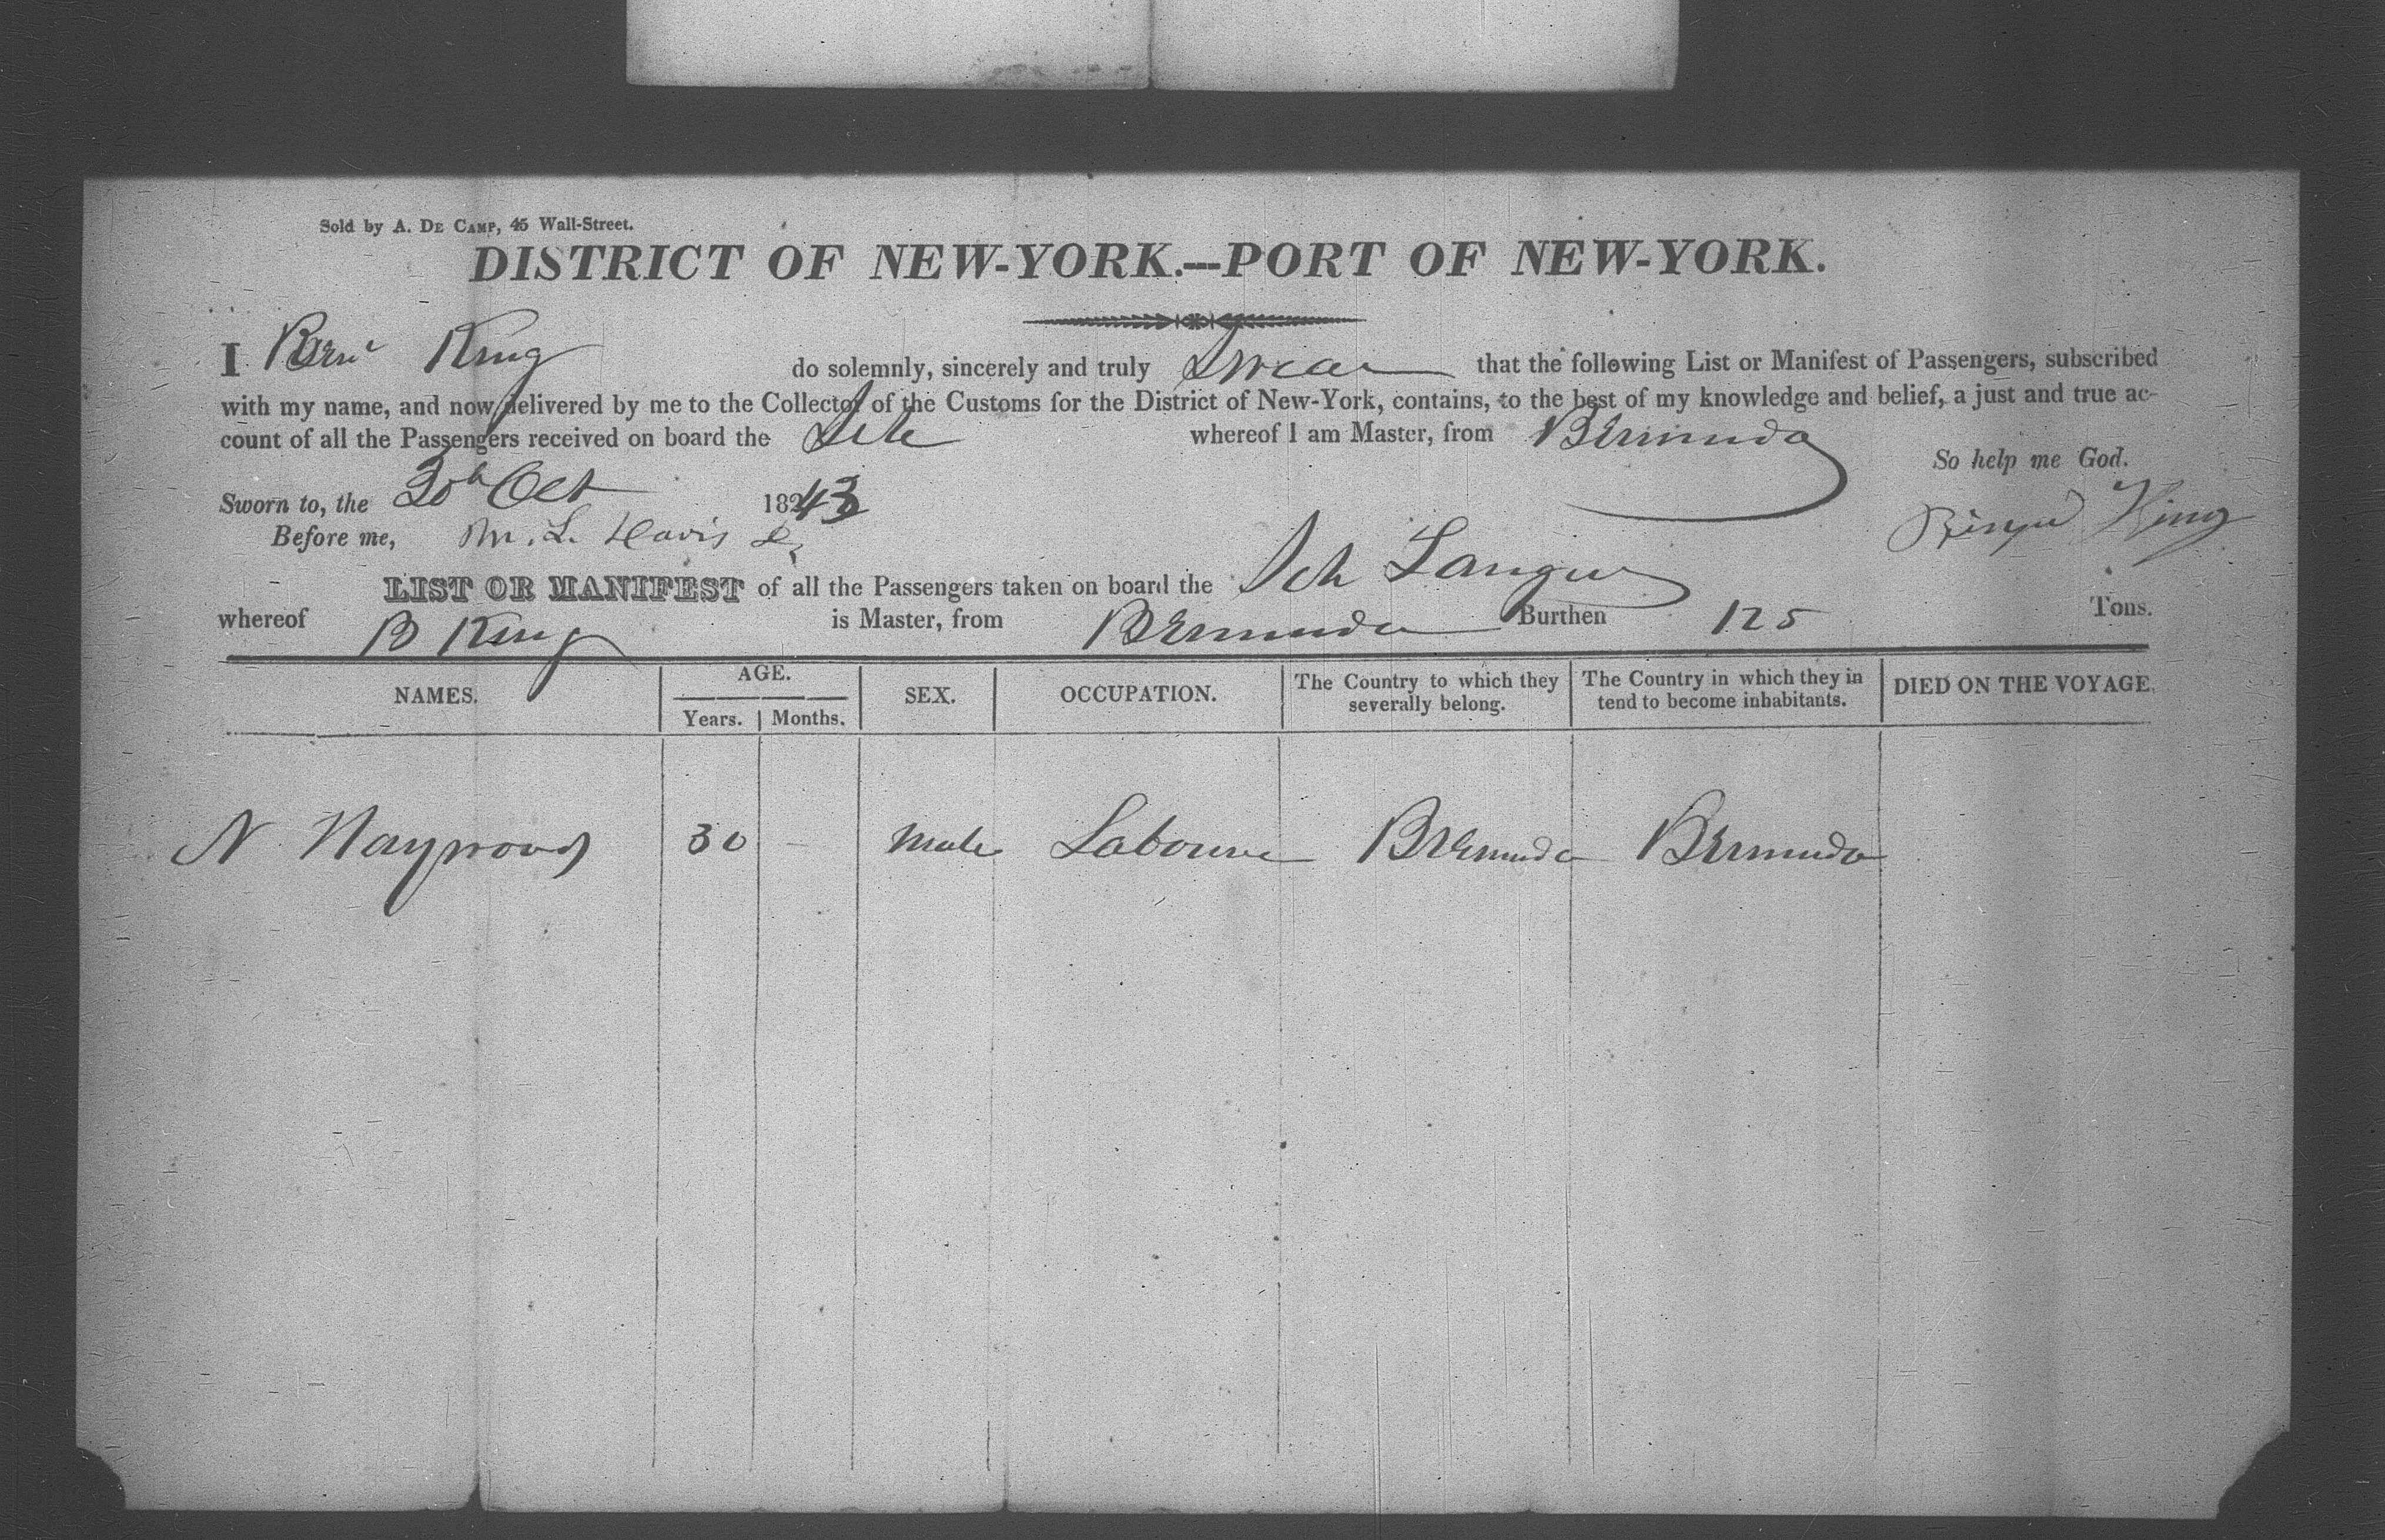 Sold by A. DE CAMP, 45 Wall-Street.
DISTRICT OF NEW-YORK.—PORT OF NEW-YORK.
I King do solemnly, sincerely and truly Swear that the following List or Manifest of Passengers, subscribed
with my name, and now delivered by me to the Collector of the Customs for the District of New-York, contains, to the best of my knowledge and belief, a just and true ac-
count of all the Passengers received on board the Sch whereof I am Master, from Bermuda
So help me God.
Sworn to, the 30th Oct 1843
King
Before me, M. L. Davis
LIST OR MANIFEST of all the Passengers taken on board the Sch
whereof B King is Master, from Bermuda Burthen 125 Tons.
NAMES. AGE. SEX. OCCUPATION. The Country to which they severally belong. The Country in which they in tend to become inhabitants. DIED ON THE VOYAGE.
Years. Months.
N Haywood 30 - Male Labourer Bermuda Bermuda